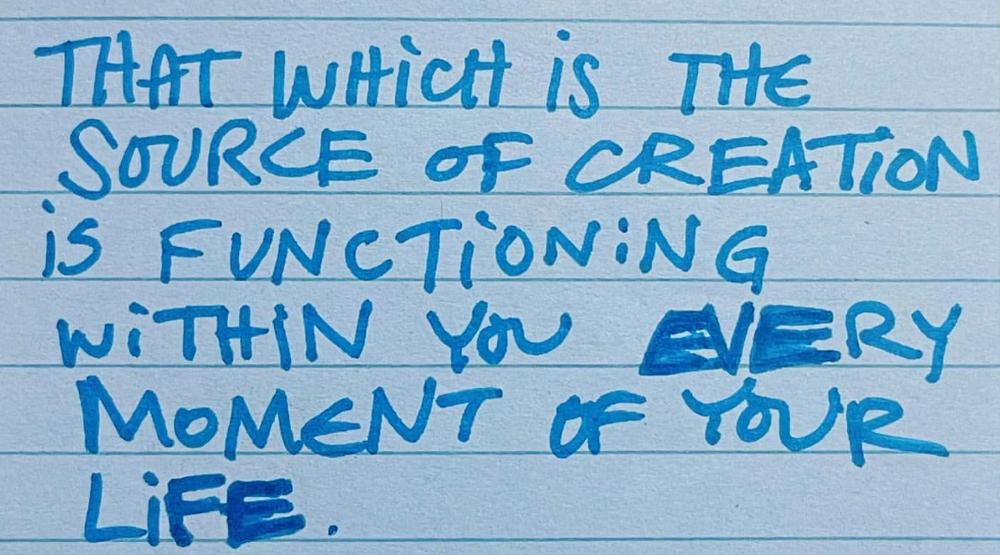 THAT WHiCH iS THE
SOURCE OF CREATiON
iS FUNCTiONiNG
WiTHIN YOU EVERY
MOMENT OF YOUR
LiFE.